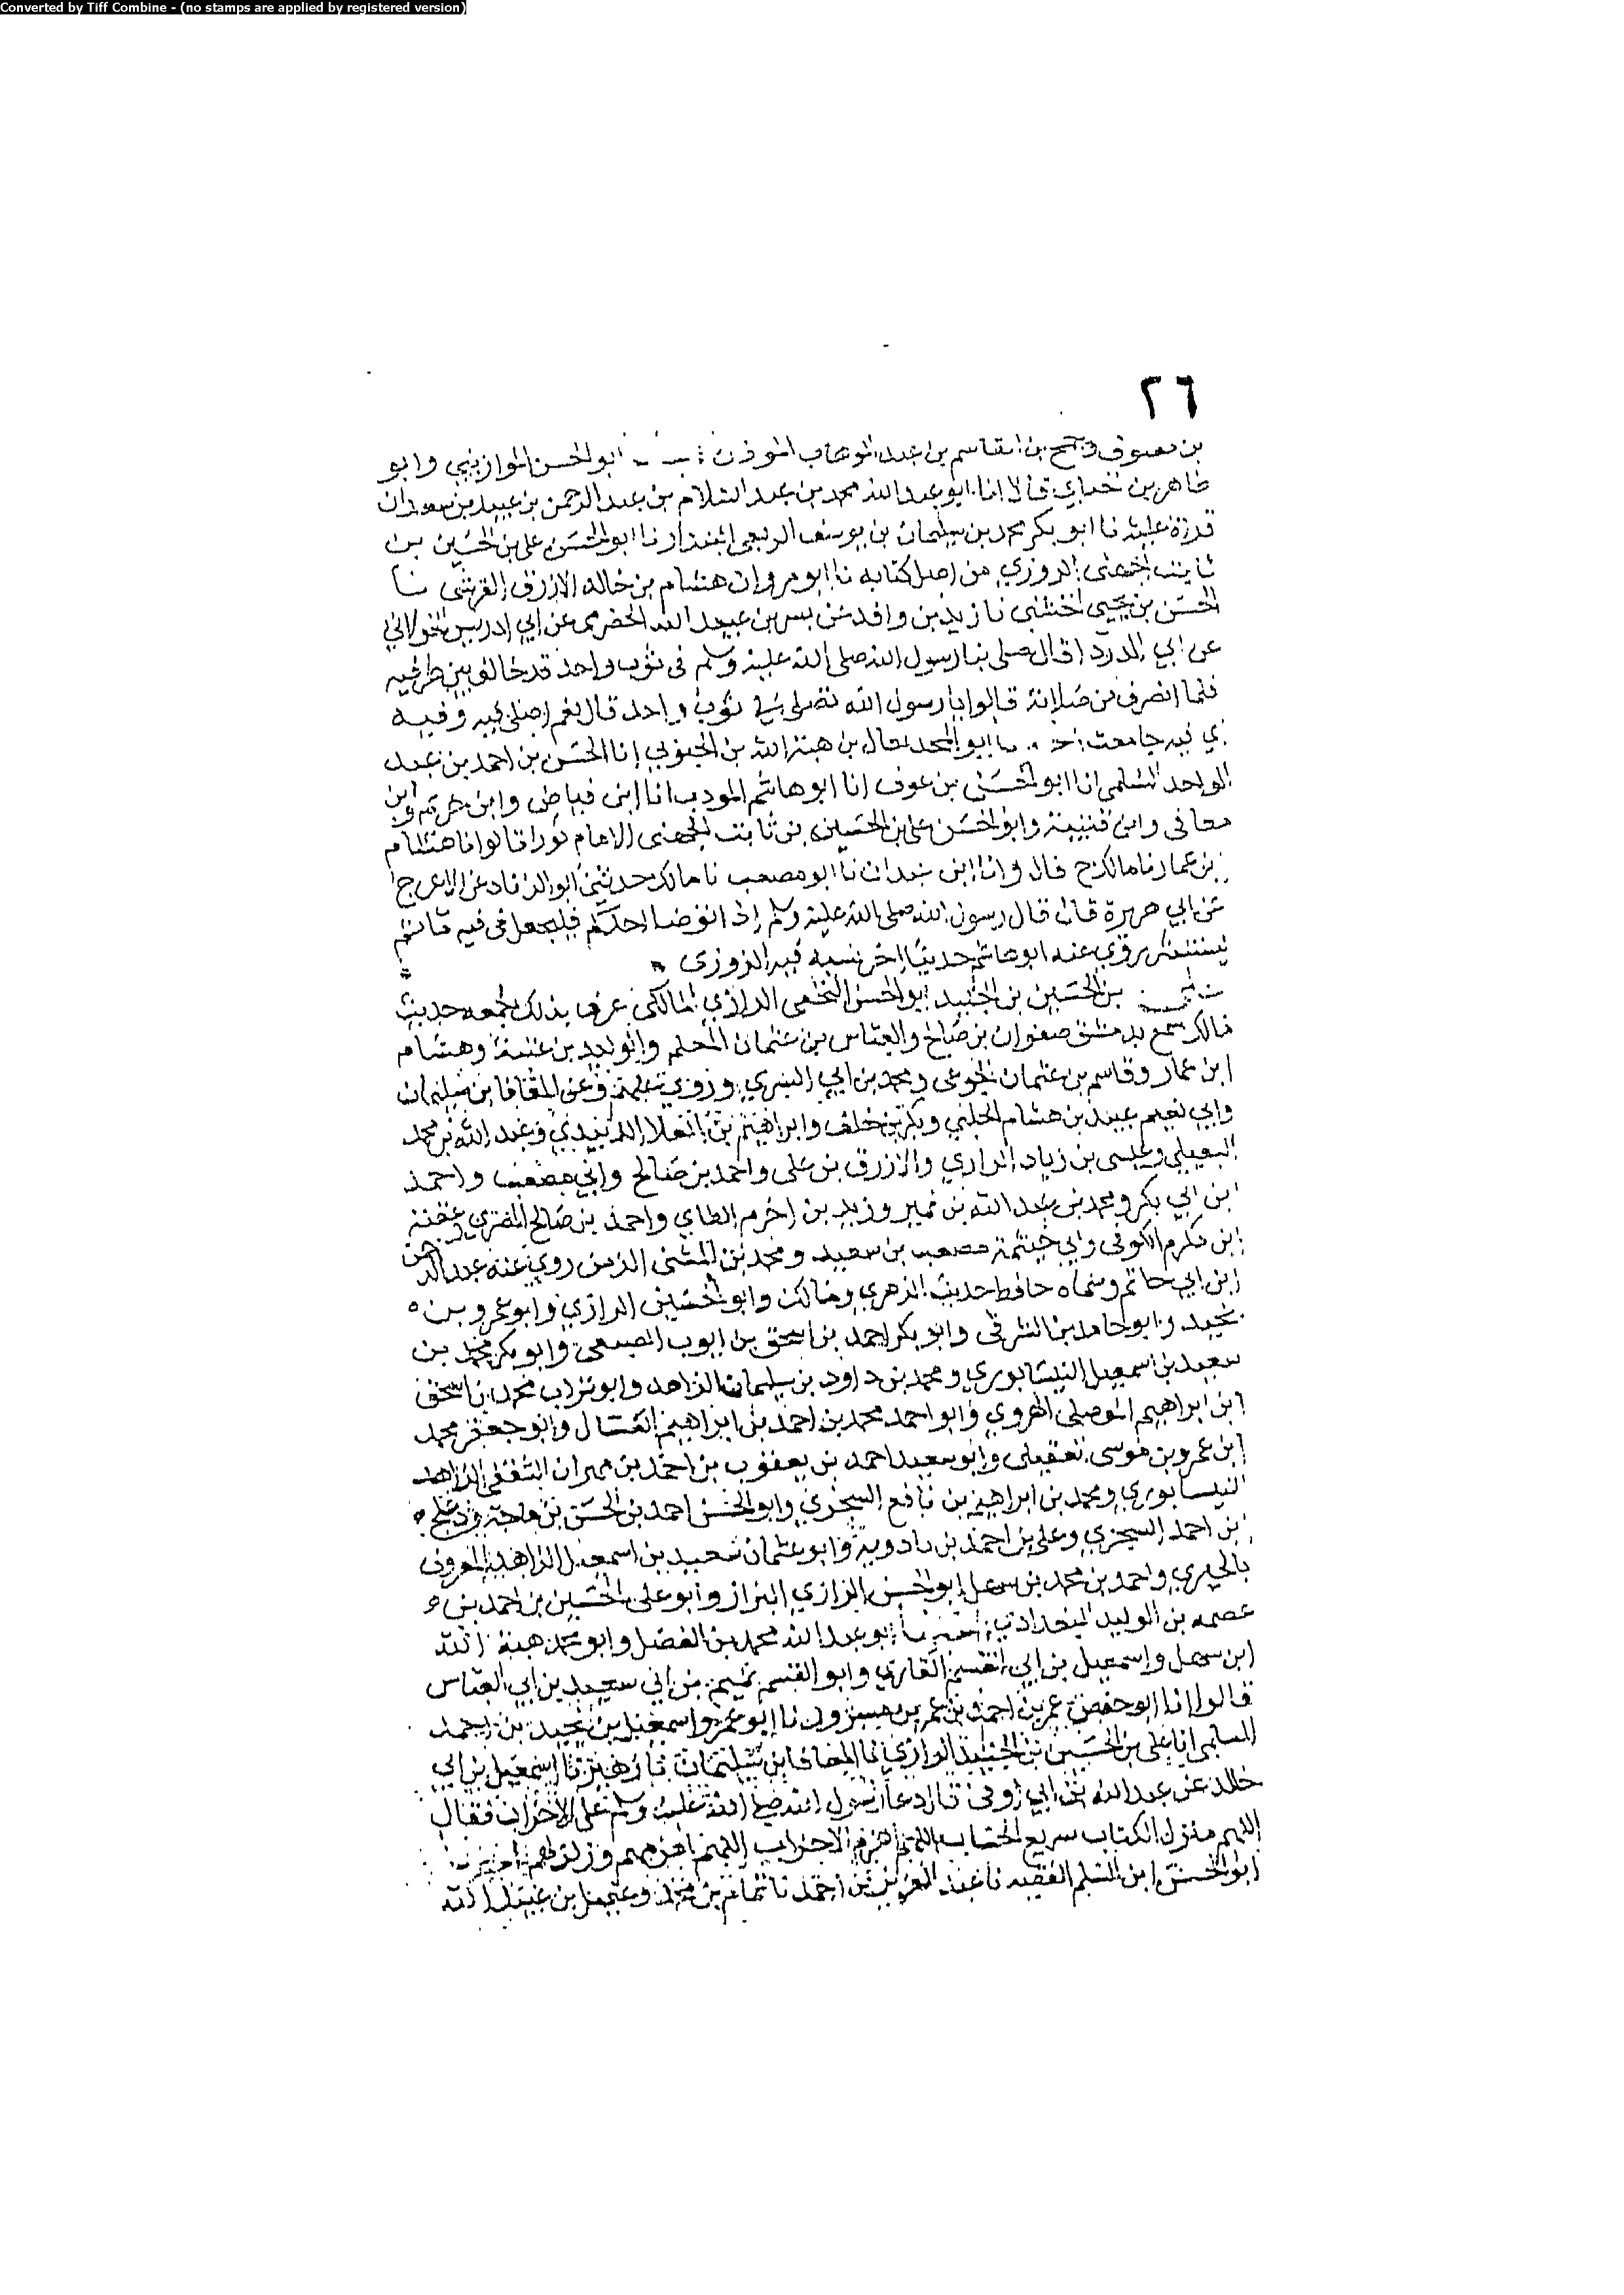 Converted by Tiff Combine - (no stamps are applied by registered version)
٢٦
بن معيوف وجمح بن القاسم بن عبد الوهاب الموذن ابو الحسن الموازيني وابو
طاهر بن قالا انا ابو عبد الله محمد بن عبد السلام بن عبد الرحمن بن عبيد بن سعدان
عليه نا ابو بكر محمد بن سليمان بن يوسف الربعي البندار نا ابو الحسن علي بن الحسين بن
ثابت من اصل كتابه نا ابو مروان هشام بن خالد الازرق القرشي نا
الحسن بن يحيى الخشني نا زيد بن واقد عن بسر بن عبيد الله الحضرمي عن ابي ادريس الخولاني
عن ابي الدردا قال صلى بنا رسول الله صلى الله عليه وسلم في ثوب واحد قد خالف بين طرفيه
فلما انصرف من صلاته قالوا يا رسول الله تصلي في ثوب واحد قال نعم اصلي فيه وفيه
اي فيه جامعت ابو المجد معالي بن هبة الله بن الحبوبي انا الحسن بن احمد بن عبد
الواحد السلمي انا ابو الحسن بن عوف انا ابو هاشم المودب انا ابن فياض وابن خريم وابن
معافى وابن قتيبة وابو الحسن علي بن الحسين بن ثابت الجهني الامام قالوا نا هشام
بن عمار نا مالك ح قال وانا ابن نا ابو مصعب نا مالك حدثني ابو الزناد عن الاعرج
عن ابي هريرة قال قال رسول الله صلى الله عليه وسلم اذا توضا احدكم فليجعل في فيه ثم
روى عنه ابو هاشم حديثا اخر نسبه فيه الزوزي
بن الحسين بن الجنيد ابو الحسن النخعي الرازي المالكي عرف بذلك لجمعه حديث
مالك سمع بدمشق صفوان بن صالح والعباس بن عثمان المعلم والوليد بن عتبة وهشام
ابن عمار وقاسم بن عثمان الجوعي ومحمد بن ابي السري وعن المعافا بن سليمان
وابي نعيم عبيد بن هشام الحلبي وبكر بن خلف وابراهيم بن العلا الزبيدي وعبد الله بن محمد
النفيلي وعيسى بن زياد الرازي والازرق بن علي واحمد بن صالح وابي مصعب واحمد
ابن ابي بكر ومحمد بن عبد الله بن نمير وزيد بن اخزم الطاي واحمد بن صالح المصري وعقبة
ابن مكرم الكوفي وابي خيثمة مصعب بن سعيد ومحمد بن المثنى الزمن روى عنه عبد الرحمن
ابن ابي حاتم وسماه حافظ حديث الزهري ومالك وابو الحسين الرازي وابو عمرو بن
نجيد وابو حامد بن الشرقي وابو بكر احمد بن اسحق بن ايوب الصبغي وابو بكر محمد بن
سعيد بن اسمعيل النيسابوري ومحمد بن داود بن سليمان الزاهد وابو تراب محمد بن اسحق
ابن ابراهيم الموصلي الهروي وابو احمد محمد بن احمد بن ابراهيم العسال وابو جعفر محمد
ابن عمرو بن موسى العقيلي وابو سعيد احمد بن يعقوب بن احمد بن مهران الثقفي الزاهد
النيسابوري ومحمد بن ابراهيم بن نافع السجزي وابو الحسن احمد بن الحسن بن ماجة ودعلج
بن احمد السجزي وعلي بن احمد بن بادويه وابو عثمان سعيد بن اسمعيل الزاهد المعروف
بالحيري واحمد بن محمد بن سهل ابو الحسن الرازي البزاز وابو علي الحسين بن احمد بن
عصمه بن الوليد البغدادي اخبرنا ابو عبد الله محمد بن الفضل وابو محمد هبة الله
ابن سهل واسمعيل بن ابي القسم القاري وابو القسم تميم بن ابي سعيد بن ابي العباس
قالوا انا ابو حفص عمر بن احمد بن عمر بن مسرور نا ابو عمرو اسمعيل بن نجيد بن احمد
السلمي انا علي بن الحسين بن الجنيد الرازي نا المعافا بن سليمان نا زهير نا اسمعيل بن ابي
خالد عن عبد الله بن ابي اوفى قال دعا رسول الله صلى الله عليه وسلم على الاحزاب فقال
اللهم منزل الكتاب سريع الحساب اللهم اهزم الاحزاب اللهم اهزمهم وزلزلهم اخبرنا
ابو الحسن ابن المسلم الفقيه نا عبد العزيز بن احمد نا تمام بن محمد وعقيل بن عبيد الله